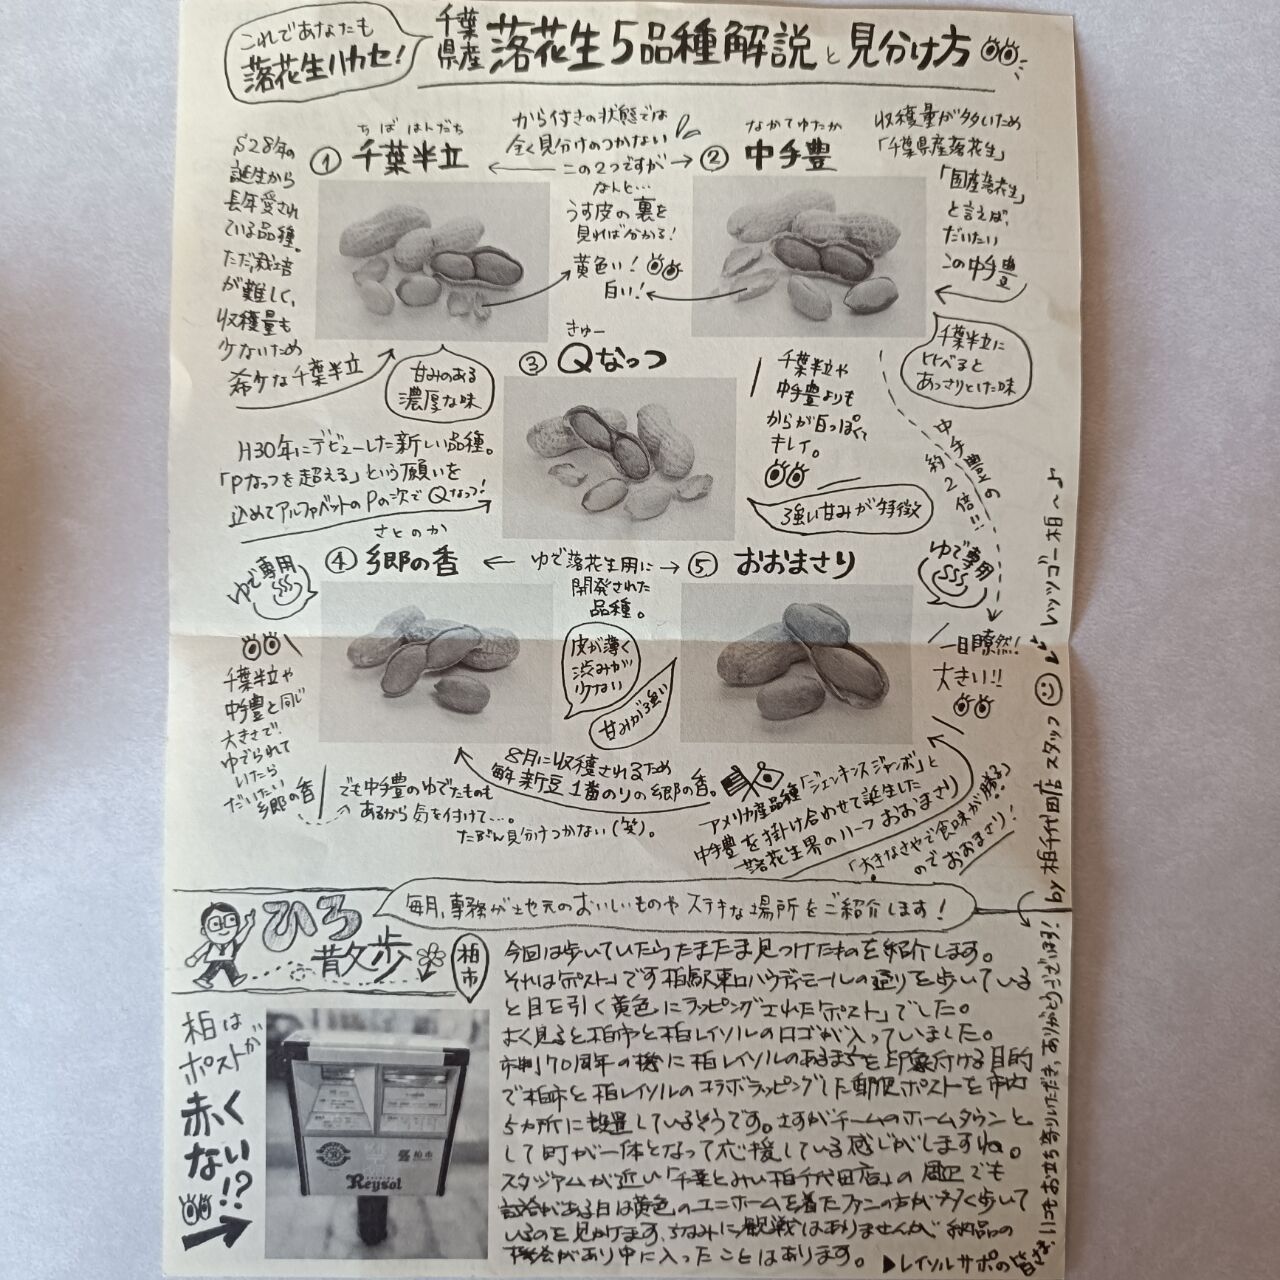 これであなたも
落花生ハカセ!
千葉
県産
落花生5品種解説と見分け方
S28年の
誕生から
長年愛され
ている品種。
ただ、栽培
が難しく、
収穫量も
少ないため
希少な千葉半立
ちば はんだち
① 千葉半立
から付きの状態では
全く見分けのつかない
この2つですが
なんと…
うす皮の裏を
見れば分かる!
黄色い!
白い!
なかてゆたか
② 中手豊
収穫量が多いため
「千葉県産落花生」
「国産落花生」
と言えば、
だいたい
この中手豊
甘みのある
濃厚な味
千葉半立に
比べると
あっさりとした味
きゅー
③ Qなっつ
H30年にデビューした新しい品種。
「Pなっつを超える」という願いを
込めてアルファベットのPの次でQなっつ!
千葉半立や
中手豊よりも
からが白っぽくて
キレイ。
強い甘みが特徴
中手豊の
約2倍!!
さとのか
④ 郷の香
ゆで専用
ゆで落花生用に
開発された
品種。
⑤ おおまさり
ゆで専用
皮が薄く
渋みが
少ない
甘みが強い
千葉半立や
中手豊と同じ
大きさで、
ゆでられて
いたら
だいたい
郷の香
でも中手豊のゆでたものも
あるから気を付けて…。
たぶん見分けつかない(笑)。
8月に収穫されるため
毎年新豆1番のりの郷の香。
一目瞭然!
大きい!!
アメリカ産品種「ジェンキンスジャンボ」と
中手豊を掛け合わせて誕生した
落花生界のハーフおおまさり
「大きなさやで食味が勝る」
のでおおまさり!
ひろ
散歩
柏市
毎月、事務が地元のおいしいものやステキな場所をご紹介します!
柏は
ポストが
赤く
ない!?
柏市
Reysol
今回は歩いていたらたまたま見つけたものを紹介します。
それは「ポスト」です柏駅東口ハウディモールの通りを歩いている
と目を引く黄色にラッピングされた「ポスト」でした。
よく見ると柏市と柏レイソルのロゴが入っていました。
市制70周年の機に柏レイソルのあるまちを印象付ける目的
で柏市と柏レイソルのコラボラッピングした郵便ポストを市内
5カ所に設置しているそうです。さすがチームのホームタウンと
して町が一体となって応援している感じがしますね。
スタジアムが近い「千葉とみい柏千代田店」の周辺でも
試合がある日は黄色のユニホームを着たファンの方が多く歩いて
いるのを見かけます、ちなみに観戦はありませんが、納品の
機会があり中に入ったことはあります。
▶レイソルサポの皆さま、いつもお立ち寄りいただき、ありがとうございます!
by 柏千代田店スタッフ
レッツゴー柏〜♪